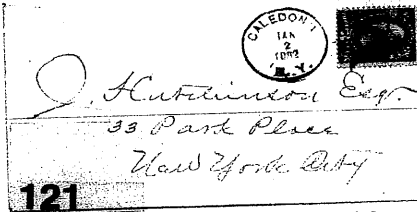 CALEDONIA
JAN
2
1892
N.Y.
J. Hutchinson Esqr.
33 Park Place
New York City
121